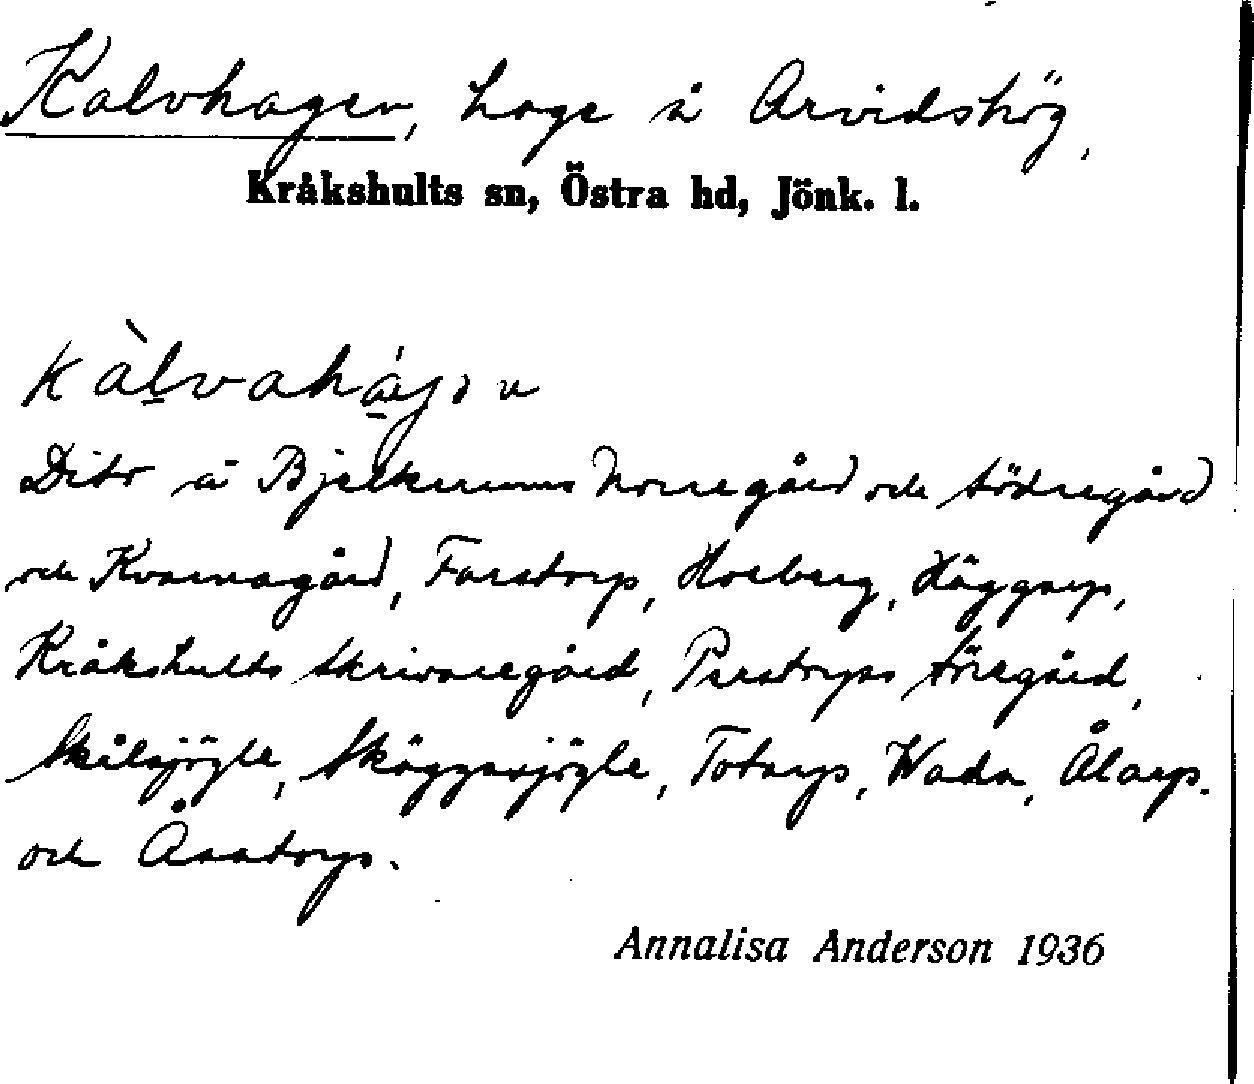 Kalvhagen, hage å Arvidshög,
Kråkshults sn, Östra hd, Jönk. l.
kàlvahájən
Dito å Bjelkerums Norregård och Södregård
och Kvarnagård, Farstorp, Horberg, Häggarp,
Kråkshults Skrivaregård, Perstorps Söregård,
Skälsjögle, Skäggesjögle, Totarp, Wada, Ålarp.
och Åsatorp.
Annalisa Anderson 1936